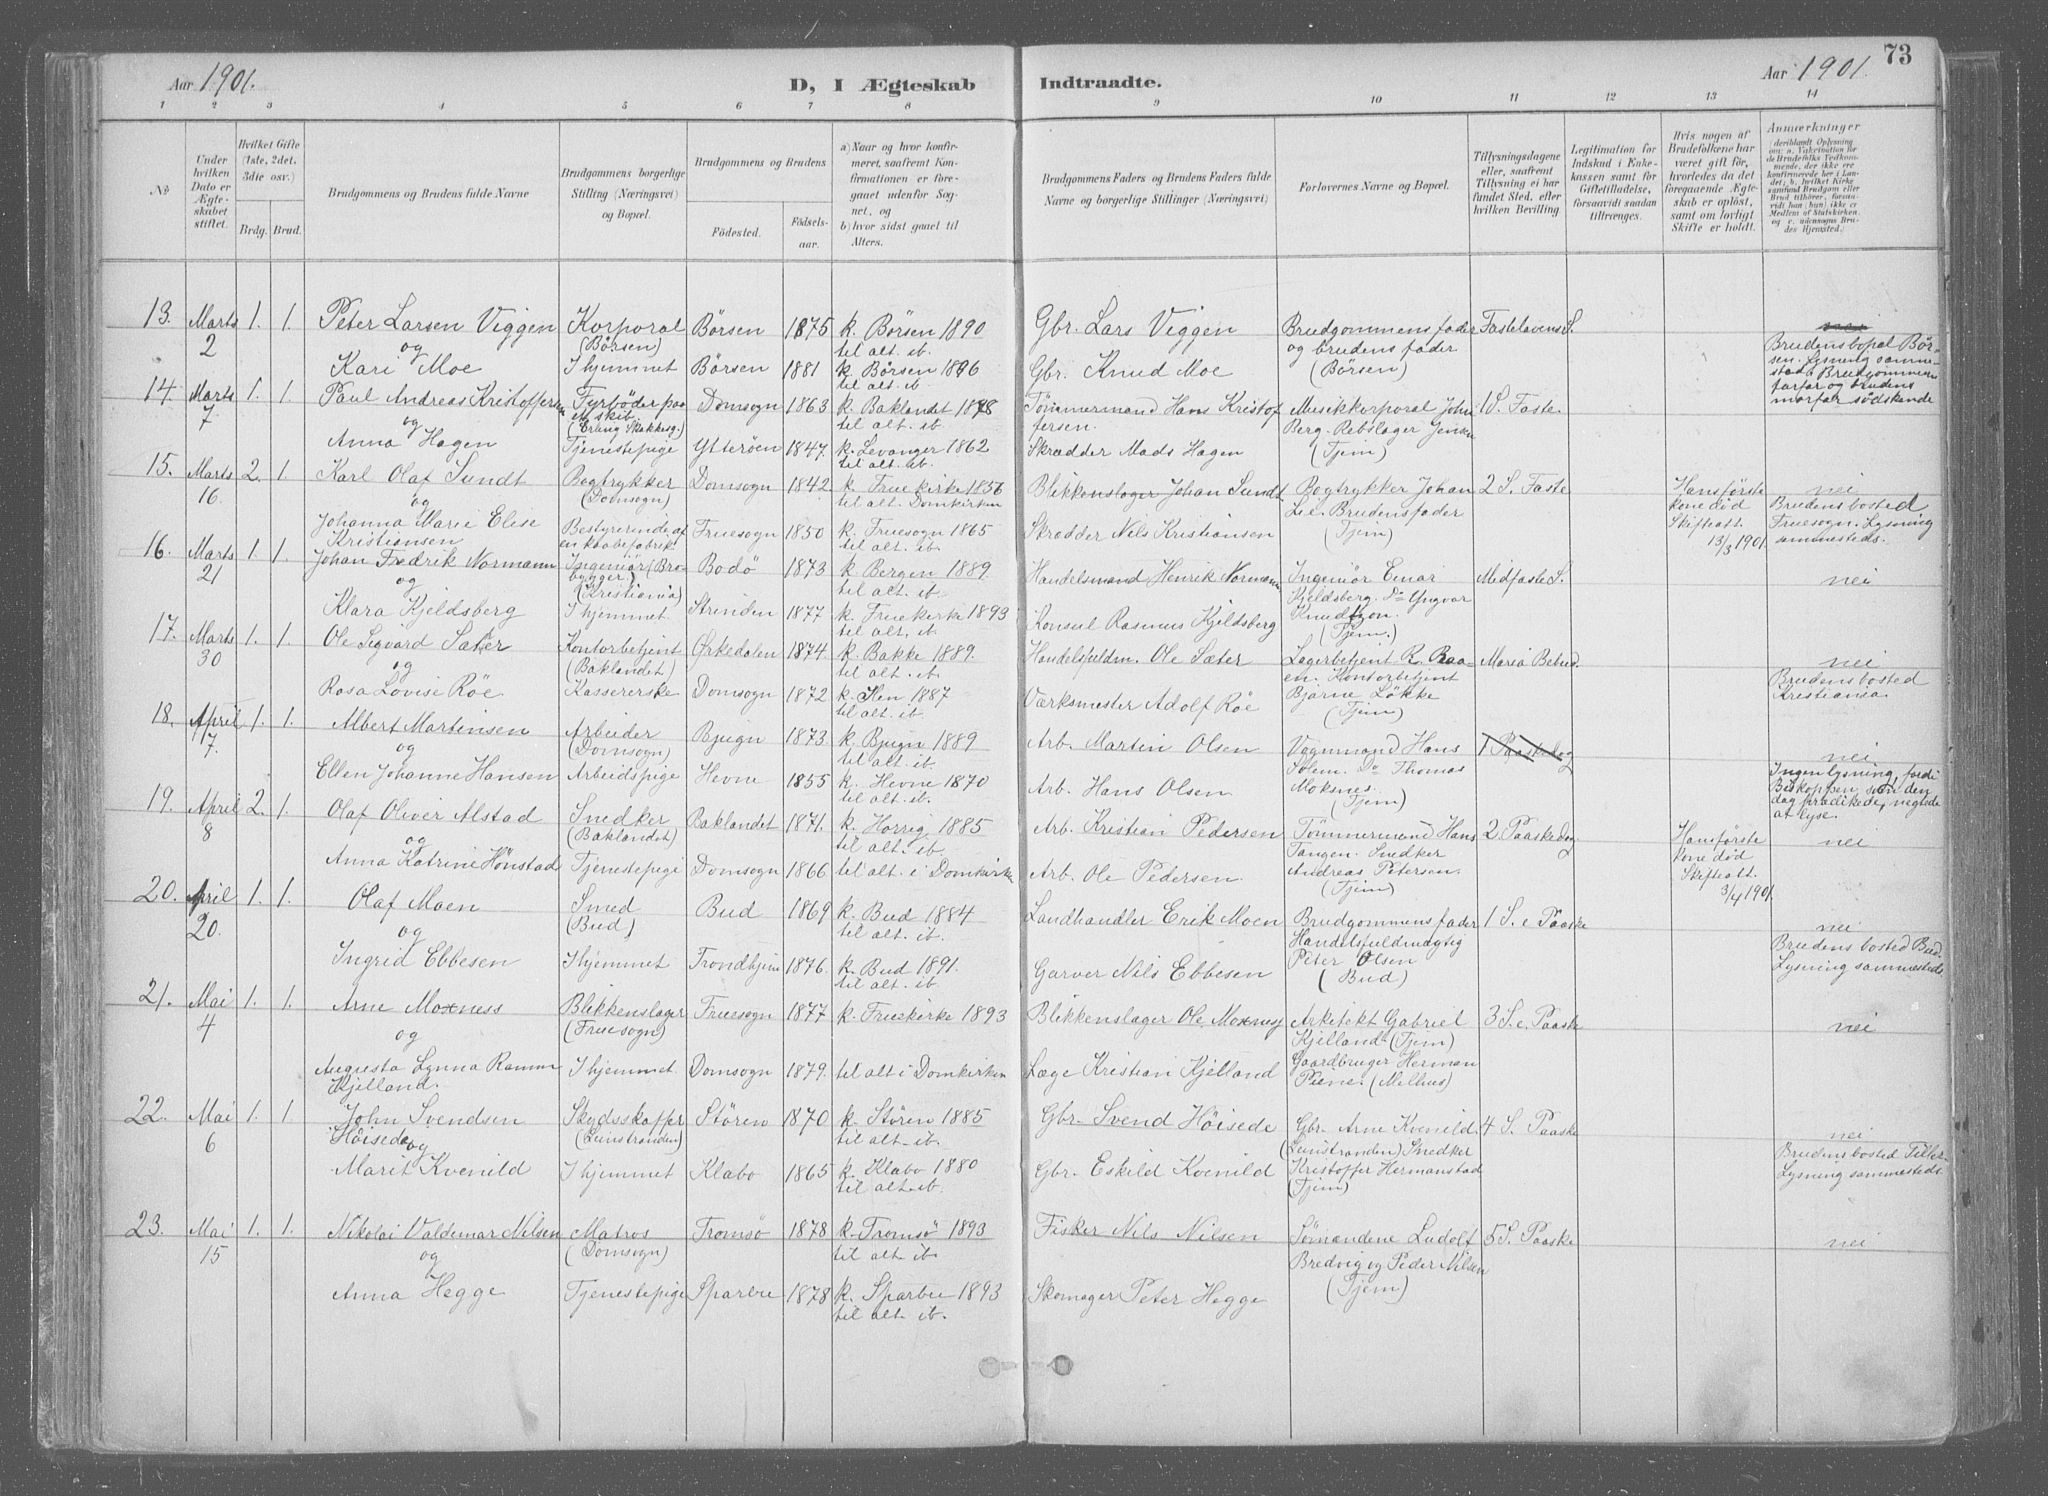 Aar 1901.
D, I Ægteskab Indtraadte.
Aar 1901. 73
1 2 3 4 5 6 7 8 9 10 11 12 13 14
№
Under hvilken Dato er Ægteskabet stiftet.
Hvilket Gifte (1ste, 2det, 3die osv.)
Brdg. Brud.
Brudgommens og Brudens fulde Navne
Brudgommens borgerlige Stilling (Næringsvei) og Bopæl.
Brudgommens og Brudens
Födested. Födselsaar.
a) Naar og hvor konfirmeret, saafremt Konfirmationen er foregaaet udenfor Sognet, og
b) hvor sidst gaaet til Alters.
Brudgommens Faders og Brudens Faders fulde Navne og borgerlige Stillinger (Næringsvei)
Forlovernes Navne og Bopæl.
Tillysningsdagene eller, saafremt Tillysning ei har fundet Sted, efter hvilken Bevilling
Legitimation for Indskud i Enkekassen samt for Giftetilladelse, forsaavidt saadan tiltrænges.
Hvis nogen af Brudefolkene har været gift för, hvorledes da det foregaaende Ægteskab er oplöst, samt om lovligt Skifte er holdt.
Anmærkninger (deriblandt Oplysning om: a. Vakcination for de Brudefolks Vedkommende, der ikke ere konfirmerede her i Landet; b. hvilket Kirkesamfund Brudgom eller Brud tilhörer, forsaavidt han (hun) ikke er Medlem af Statskirken, og c. udensogns Brudes Hjemsted.)
13. Marts 2 1. 1. Peter Larsen Viggen Korporal (Börsen) Börsen 1875 k. Börsen 1890 til alt. ib. Gbr. Lars Viggen Brudgommens fader og brudens fader (Börsen) Fastelavens S.
og
Kari Moe I hjemmet Börsen 1881 k. Börsen 1896 til alt. ib. Gbr. Knud Moe
Brudens bopæl Börsen. Lysning sammestads. Brudgommens farfar og brudens morfar södskende
14. Marts 7 1. 1. Paul Andreas Kristoffersen Fyrböder paa (Erling Skakkesg.) Domsogn 1863 k. Baklandet 1878 til alt. ib. Tömmermand Hans Kristoffersen. Musikkorporal John Berg. Rebslager Jensen (Tjem) 1 S. Faste
og
Anna Hagen Tjenestepige Ytteröen 1847. k. Levanger 1862 til alt. ib. Skrædder Mads Hagen
15. Marts 16 2. 1. Karl Olaf Sundt Bogtrykker (Domsogn) Domsogn 1842 k. Fruekirke 1856 til alt. Domkirken Blikkenslager Johan Sundt Bogtrykker Johan Lil. Brudens fader (Tjem) 2 S. Faste Hans förste kone död Skifteatt. 13/3 1901. nei
og
Johanna Marie Elise Kristiansen Bestyrerinde af en kaabefabrik. Fruesogn 1850 k. Fruesogn 1865 til alt. ib. Skrædder Nils Kristiansen
Brudens bosted Fruesogn. Lysning sammesteds.
16. Marts 21 1. 1. Johan Fredrik Normann Ingeniör (Brobygger). (Kristiania) Bodö 1873 k. Bergen 1889. til alt. ib. Handelsmand Henrik Normann Ingeniör Einar Kjeldsberg. Do Yngvar Knudtzon. (Tjem.) Midfaste S. nei
og
Klara Kjeldsberg I hjemmet Strinden 1877 k. Fruekirke 1893 til alt. ib. Konsul Rasmus Kjeldsberg
17. Marts 30 1. 1. Ole Sigvard Sæter Kontorbetjent (Baklandet) Örkedalen 1874 k. Bakke 1889. til alt. ib. Handelsfuldm. Ole Sæter Lagerbetjent R. Raaen. Kontorbetjent Bjarne Lökke (Tjem) Mariæ Bebud. nei
og
Rosa Lovise Röe Kassererske Domsogn 1872 k. Ilen 1887 til alt. ib. Værksmester Adolf Röe
Brudens bosted Kristiania.
18. April 7. 1. 1. Albert Martinsen Arbeider (Domsogn) Bjugn 1873. k. Bjugn 1889 til alt. ib. Arb. Martin Olsen Vognmand Hans Solem. Do Thomas Moksnes. (Tjem) 1 Paaskedag nei
og
Ellen Johanne Hansen Arbeidspige Hevne 1855 k. Hevne 1870 til alt. ib. Arb. Hans Olsen
Ingen lysning, fordi Biskoppen, som den dag prædikede, negtede at lyse.
19. April 8 2. 1. Olaf Oliver Alstad Snedker (Baklandet) Baklandet 1871. k. Horrig 1885 til alt. ib. Arb. Kristian Pedersen Tömmermand Hans Tangen. Snedker Andreas Petersen. (Tjem) 2. Paaskedag Hans förste kone död Skifteatt. 3/4 1901. nei
og
Anna Katrine Hönstad Tjenestepige Domsogn 1866 til alt. i Domkirken Arb. Ole Pedersen
20. April 20. 1. 1. Olaf Moen Smed (Bud) Bud 1869 k. Bud 1884 til alt. ib. Landhandler Erik Moen Brudgommens fader Handelsfuldmægtig Peter Olsen (Bud) 1 S. e. Paaske nei
og
Ingrid Ebbesen I hjemmet Trondhjem 1876. k. Bud 1891. til alt. ib. Garver Nils Ebbesen
Brudens bosted Bud. Lysning sammesteds
21. Mai 4 1. 1. Arne Moxness Blikkenslager (Fruesogn) Fruesogn 1877 k. Fruekirke 1893 Blikkenslager Ole Moxness Arkitekt Gabriel Kjelland. (Tjem) Gaardbruger Herman Piene. (Melhus) 3 S. e. Paaske nei
og
Augusta Lynna Ramm Kjelland. I hjemmet. Domsogn 1879. til alt i Domkirken Læge Kristian Kjelland
22. Mai 6 1. 1. John Svendsen Höisede Skydsskaffer (Leinstranden) Stören 1870 k. Stören 1885 til alt. ib. Gbr. Svend Höisede Gbr. Arne Kvenild (Leinstranden) Snedker Kristoffer Hermanstad (Tjem) 4 S. Paaske nei
og
Marit Kvenild I hjemmet Klæbo 1865 k. Klæbo 1880 til alt. ib. Gbr. Eskild Kvenild
Brudens bosted Tiller. Lysning sammesteds.
23. Mai 15 1. 1. Nikolai Valdemar Nilsen Matros (Domsogn) Tromsö 1878 k. Tromsö 1893 til alt. ib. Fisker Nils Nilsen Sömændene Ludolf Bredvig og Peder Nilsen (Tjem) 5 S. Paaske nei
og
Anna Hegge Tjenestepige Sparbu 1878 k. Sparbu 1893 til alt. ib. Skomager Peter Hegge